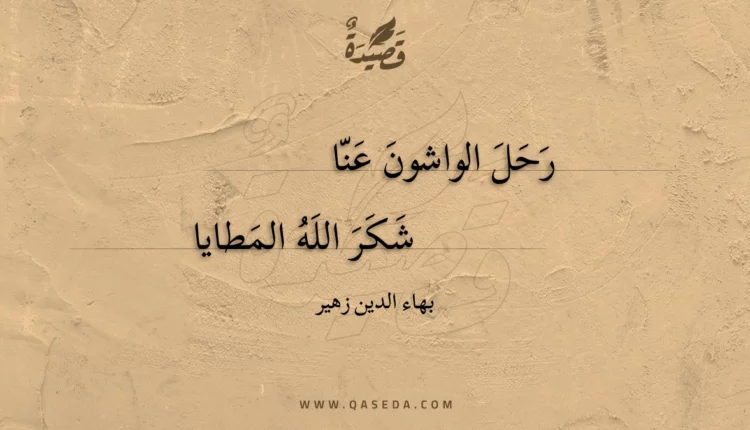 قَصِيدَةٌ
رَحَلَ الواشونَ عَنّا
شَكَرَ اللَهُ المَطايا
بهاء الدين زهير
WWW.QASEDA.COM